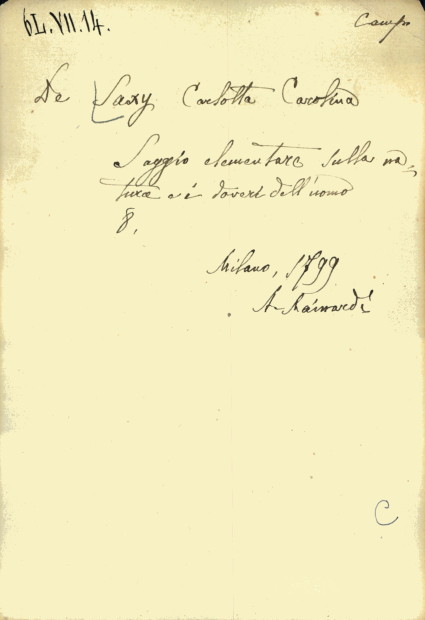 6L.VII.14.
Camp
De Saxy Carlotta Carolina
Saggio elementare sulla na-
tura e i doveri dell'uomo
8.
Milano, 1799
A. Mainardi
C